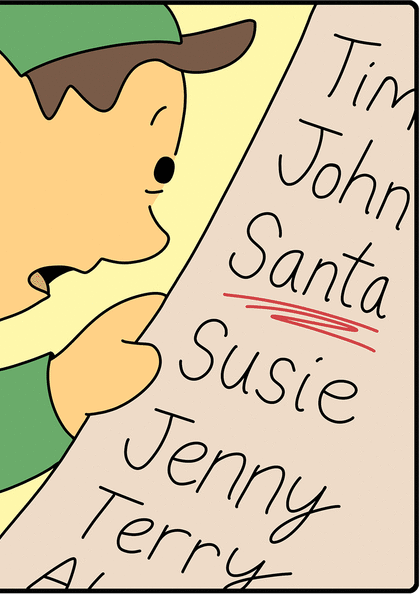 Tim
John
Santa
Susie
Jenny
Terry